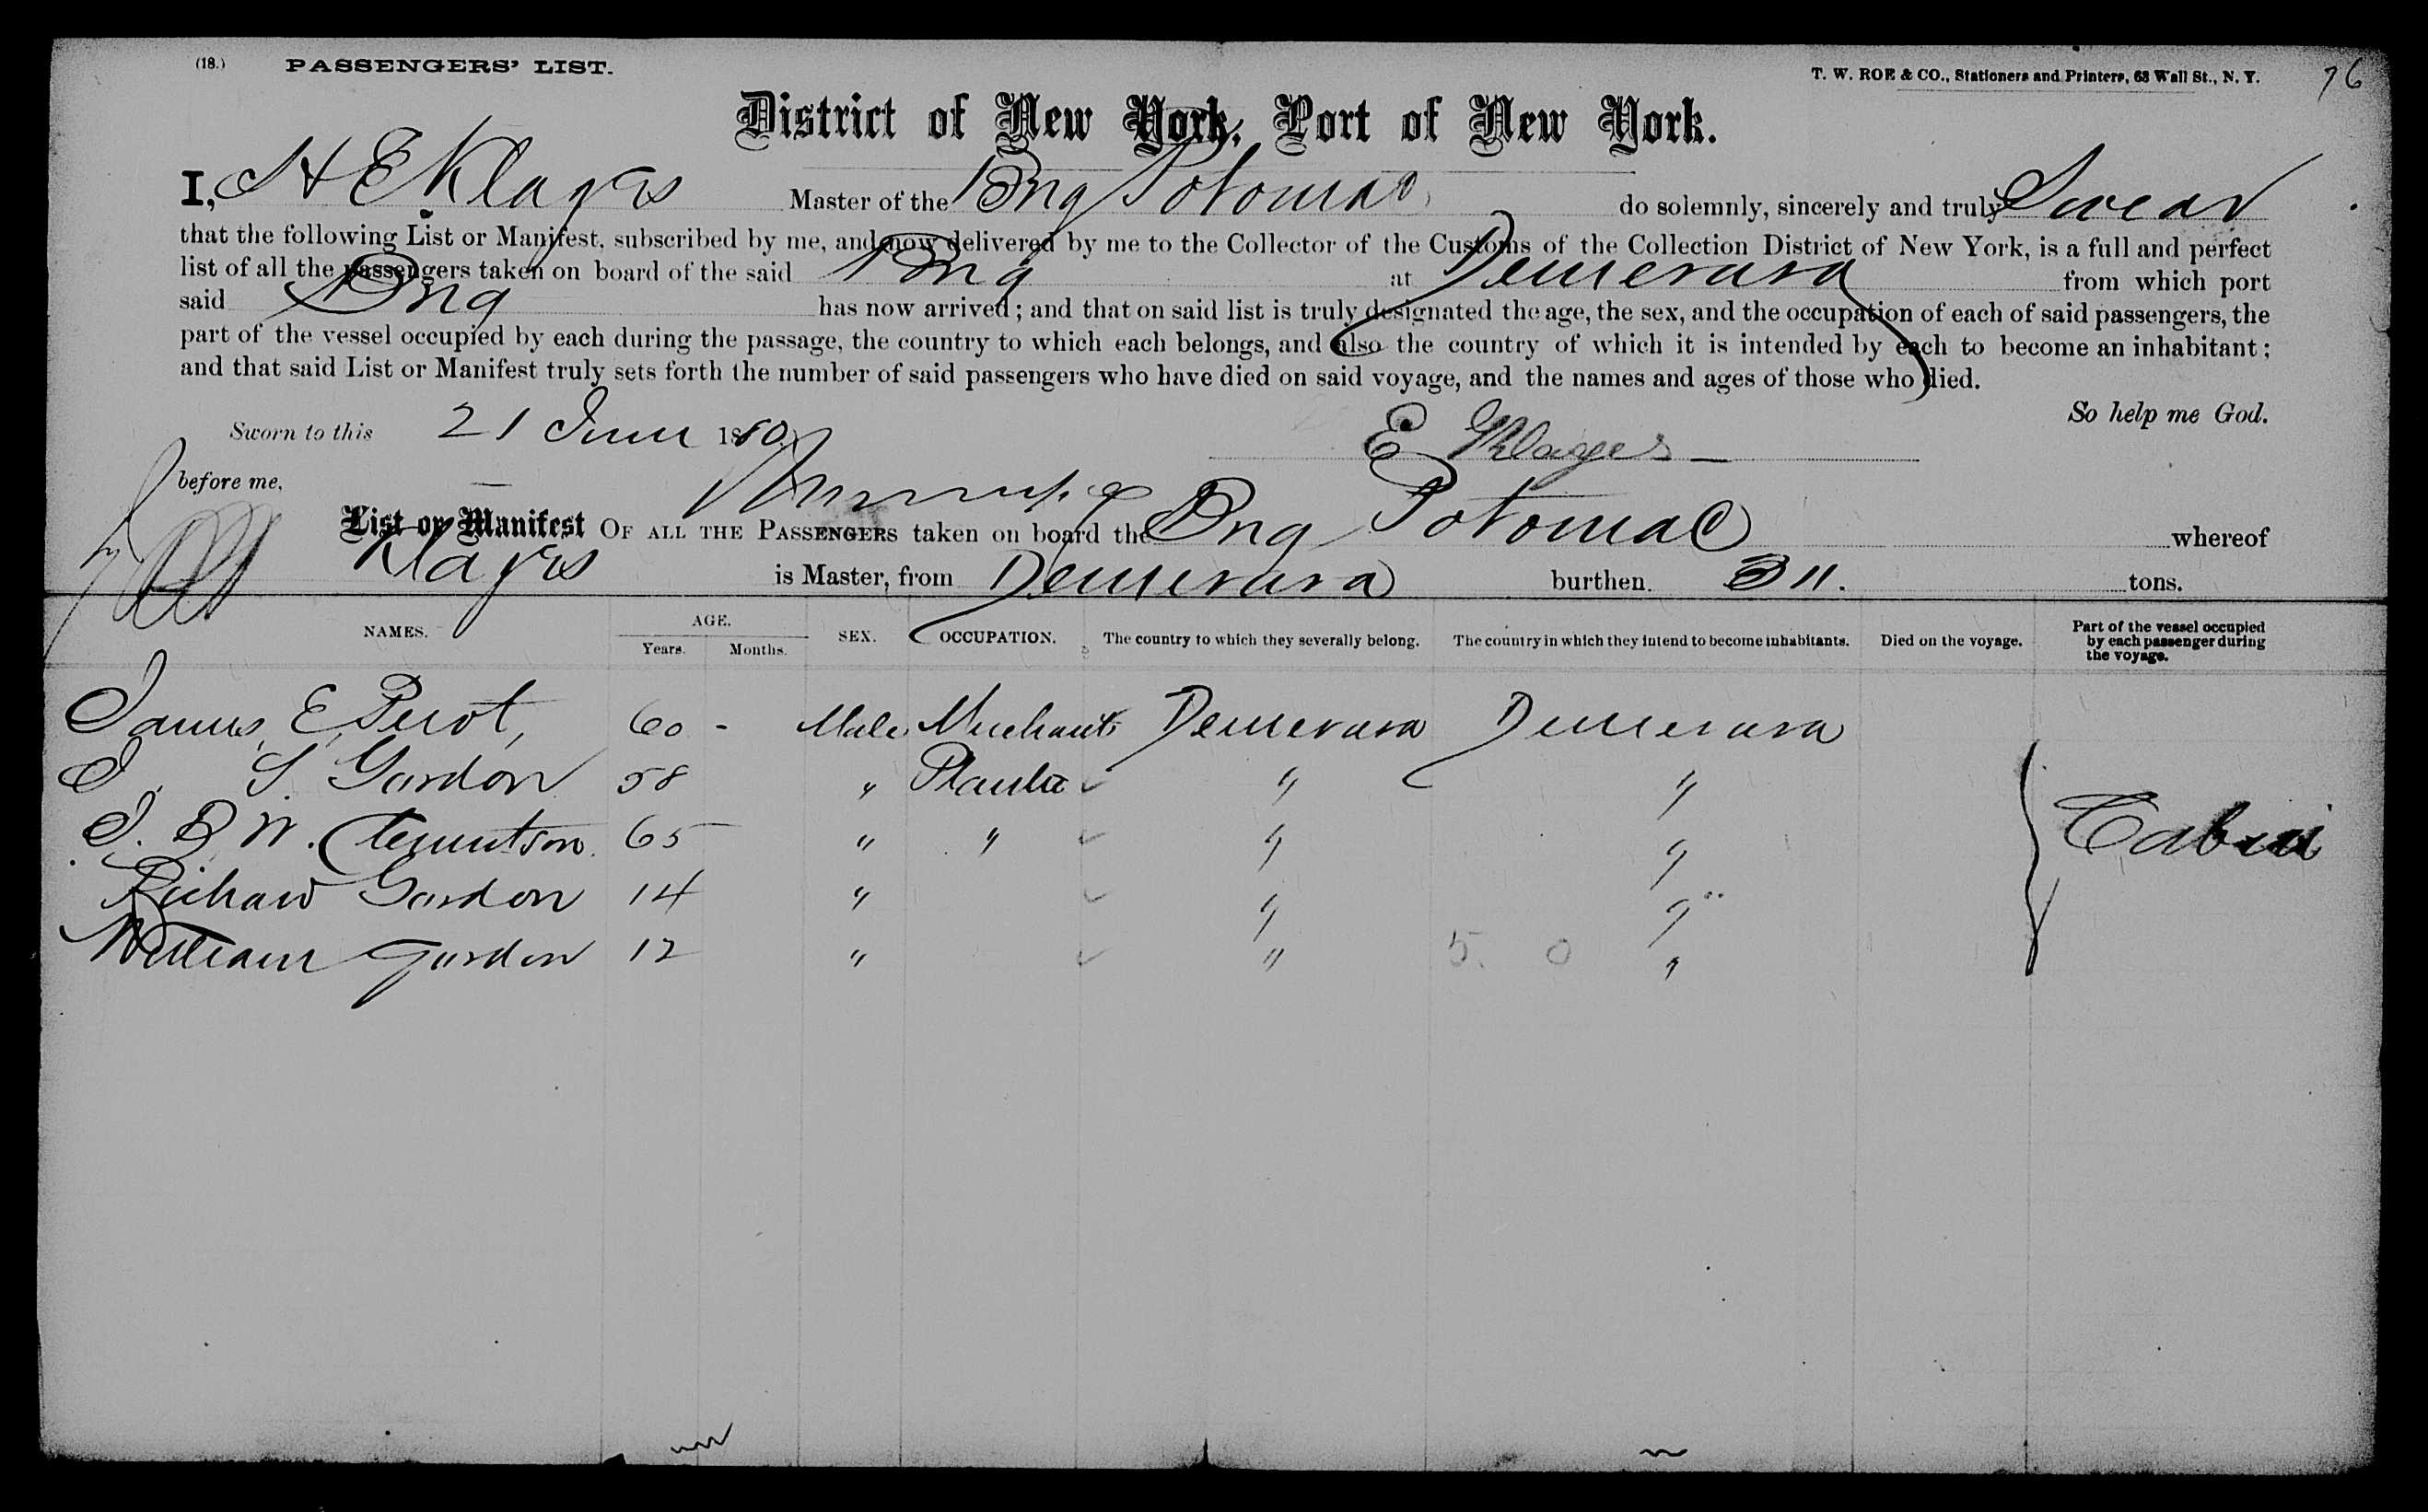 (18.) PASSENGERS' LIST. T. W. ROE & CO., Stationers and Printers, 63 Wall St., N. Y. 76
District of New York, Port of New York.
I, H E Klages Master of the Brig Potomac do solemnly, sincerely and truly Swear
that the following List or Manifest, subscribed by me, and now delivered by me to the Collector of the Customs of the Collection District of New York, is a full and perfect
list of all the passengers taken on board of the said Brig at Demerara from which port
said Brig has now arrived; and that on said list is truly designated the age, the sex, and the occupation of each of said passengers, the
part of the vessel occupied by each during the passage, the country to which each belongs, and also the country of which it is intended by each to become an inhabitant;
and that said List or Manifest truly sets forth the number of said passengers who have died on said voyage, and the names and ages of those who died.
So help me God.
Sworn to this 21 June 1880 E Klages
before me,
List or Manifest OF ALL THE PASSENGERS taken on board the Brig Potomac whereof
Klages is Master, from Demerara burthen. 311. tons.
NAMES. AGE. Years. Months. SEX. OCCUPATION. The country to which they severally belong. The country in which they intend to become inhabitants. Died on the voyage. Part of the vessel occupied by each passenger during the voyage.
James E Perot, 60 - Male Merchant Demerara Demerara
J. S. Gordon 58 " Planter " "
J. B W. 65 " " " "
Cabin
Richard Gordon 14 " " "
William Gordon 12 " " 5. 0 "